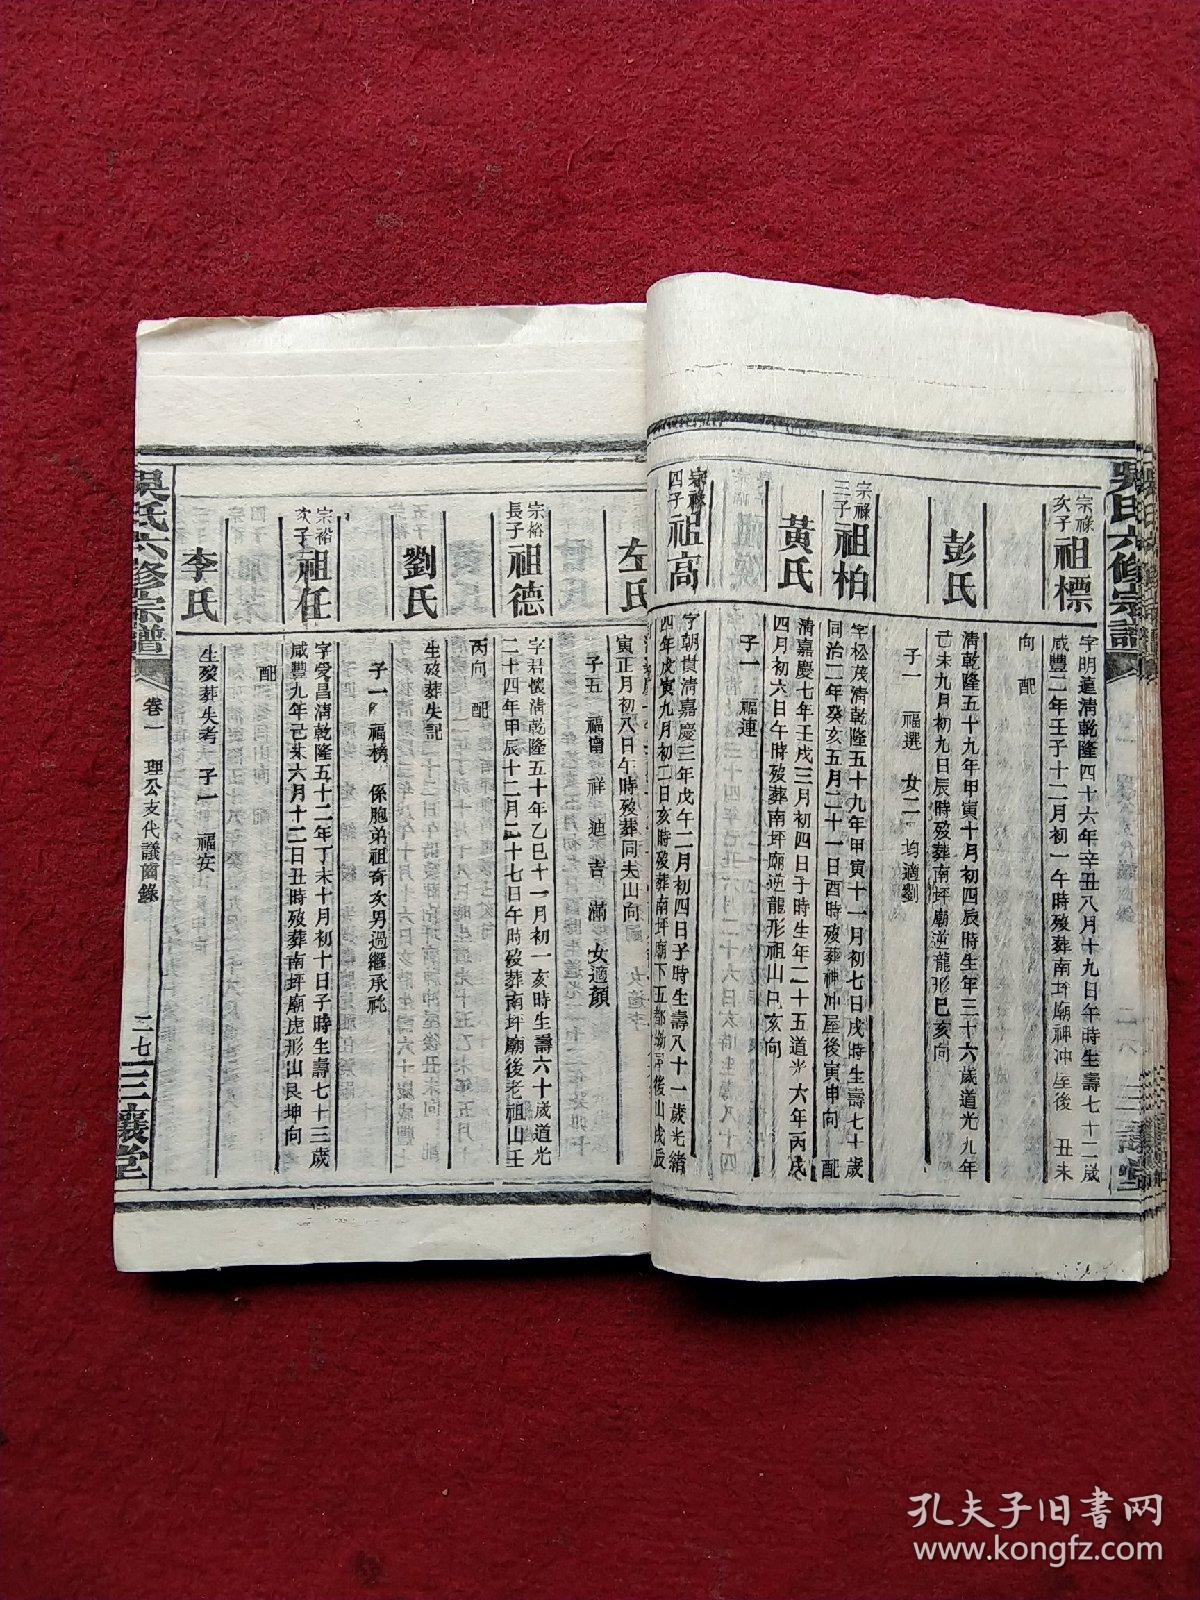 吳氏六修宗譜
宗祿
次子
祖標
字明蓮清乾隆四十六年辛丑八月十九日午時生壽七十二歲
咸豐二年壬子十二月初一午時歿葬南坪廟神冲屋後 丑未
向 配
彭氏
清乾隆五十九年甲寅十月初四辰時生年三十六歲道光九年
己未九月初九日辰時歿葬南坪廟逆龍形巳亥向
子一 福選 女二 均適劉
宗祿
三子
祖柏
字松茂清乾隆五十九年甲寅十一月初七日戌時生壽七十歲
同治二年癸亥五月二十一日酉時歿葬神冲屋後寅申向 配
黃氏
清嘉慶七年壬戌三月初四日子時生年二十五道光六年丙戌
四月初六日午時歿葬南坪廟逆龍形祖山巳亥向
子一 福連
宗祿
四子
祖高
字朝 清嘉慶三年戊午二月初四日子時生壽八十一歲光緒
四年戊寅九月初二日亥時歿葬南坪廟下五都 後山戌辰
左氏
寅正月初八日午時歿葬同夫山向
子五 福 祥 迪 吉 滿 女適顏
宗裕
長子
祖德
字君懷清乾隆五十年乙巳十一月初一亥時生壽六十歲道光
二十四年甲辰十二月二十七日午時歿葬南坪廟後老祖山壬
丙向 配
劉氏
生歿葬失記
子一 福榜 係胞弟祖奇次男過繼承祧
宗裕
次子
祖任
字愛昌清乾隆五十二年丁未十月初十日子時生壽七十三歲
咸豐九年己未六月十二日丑時歿葬南坪廟虎形山艮坤向
配
李氏
生歿葬失考 子一 福安
吳氏六修宗譜
卷一 理公支代議齒錄
二七
三讓堂
孔夫子旧书网
www.kongfz.com